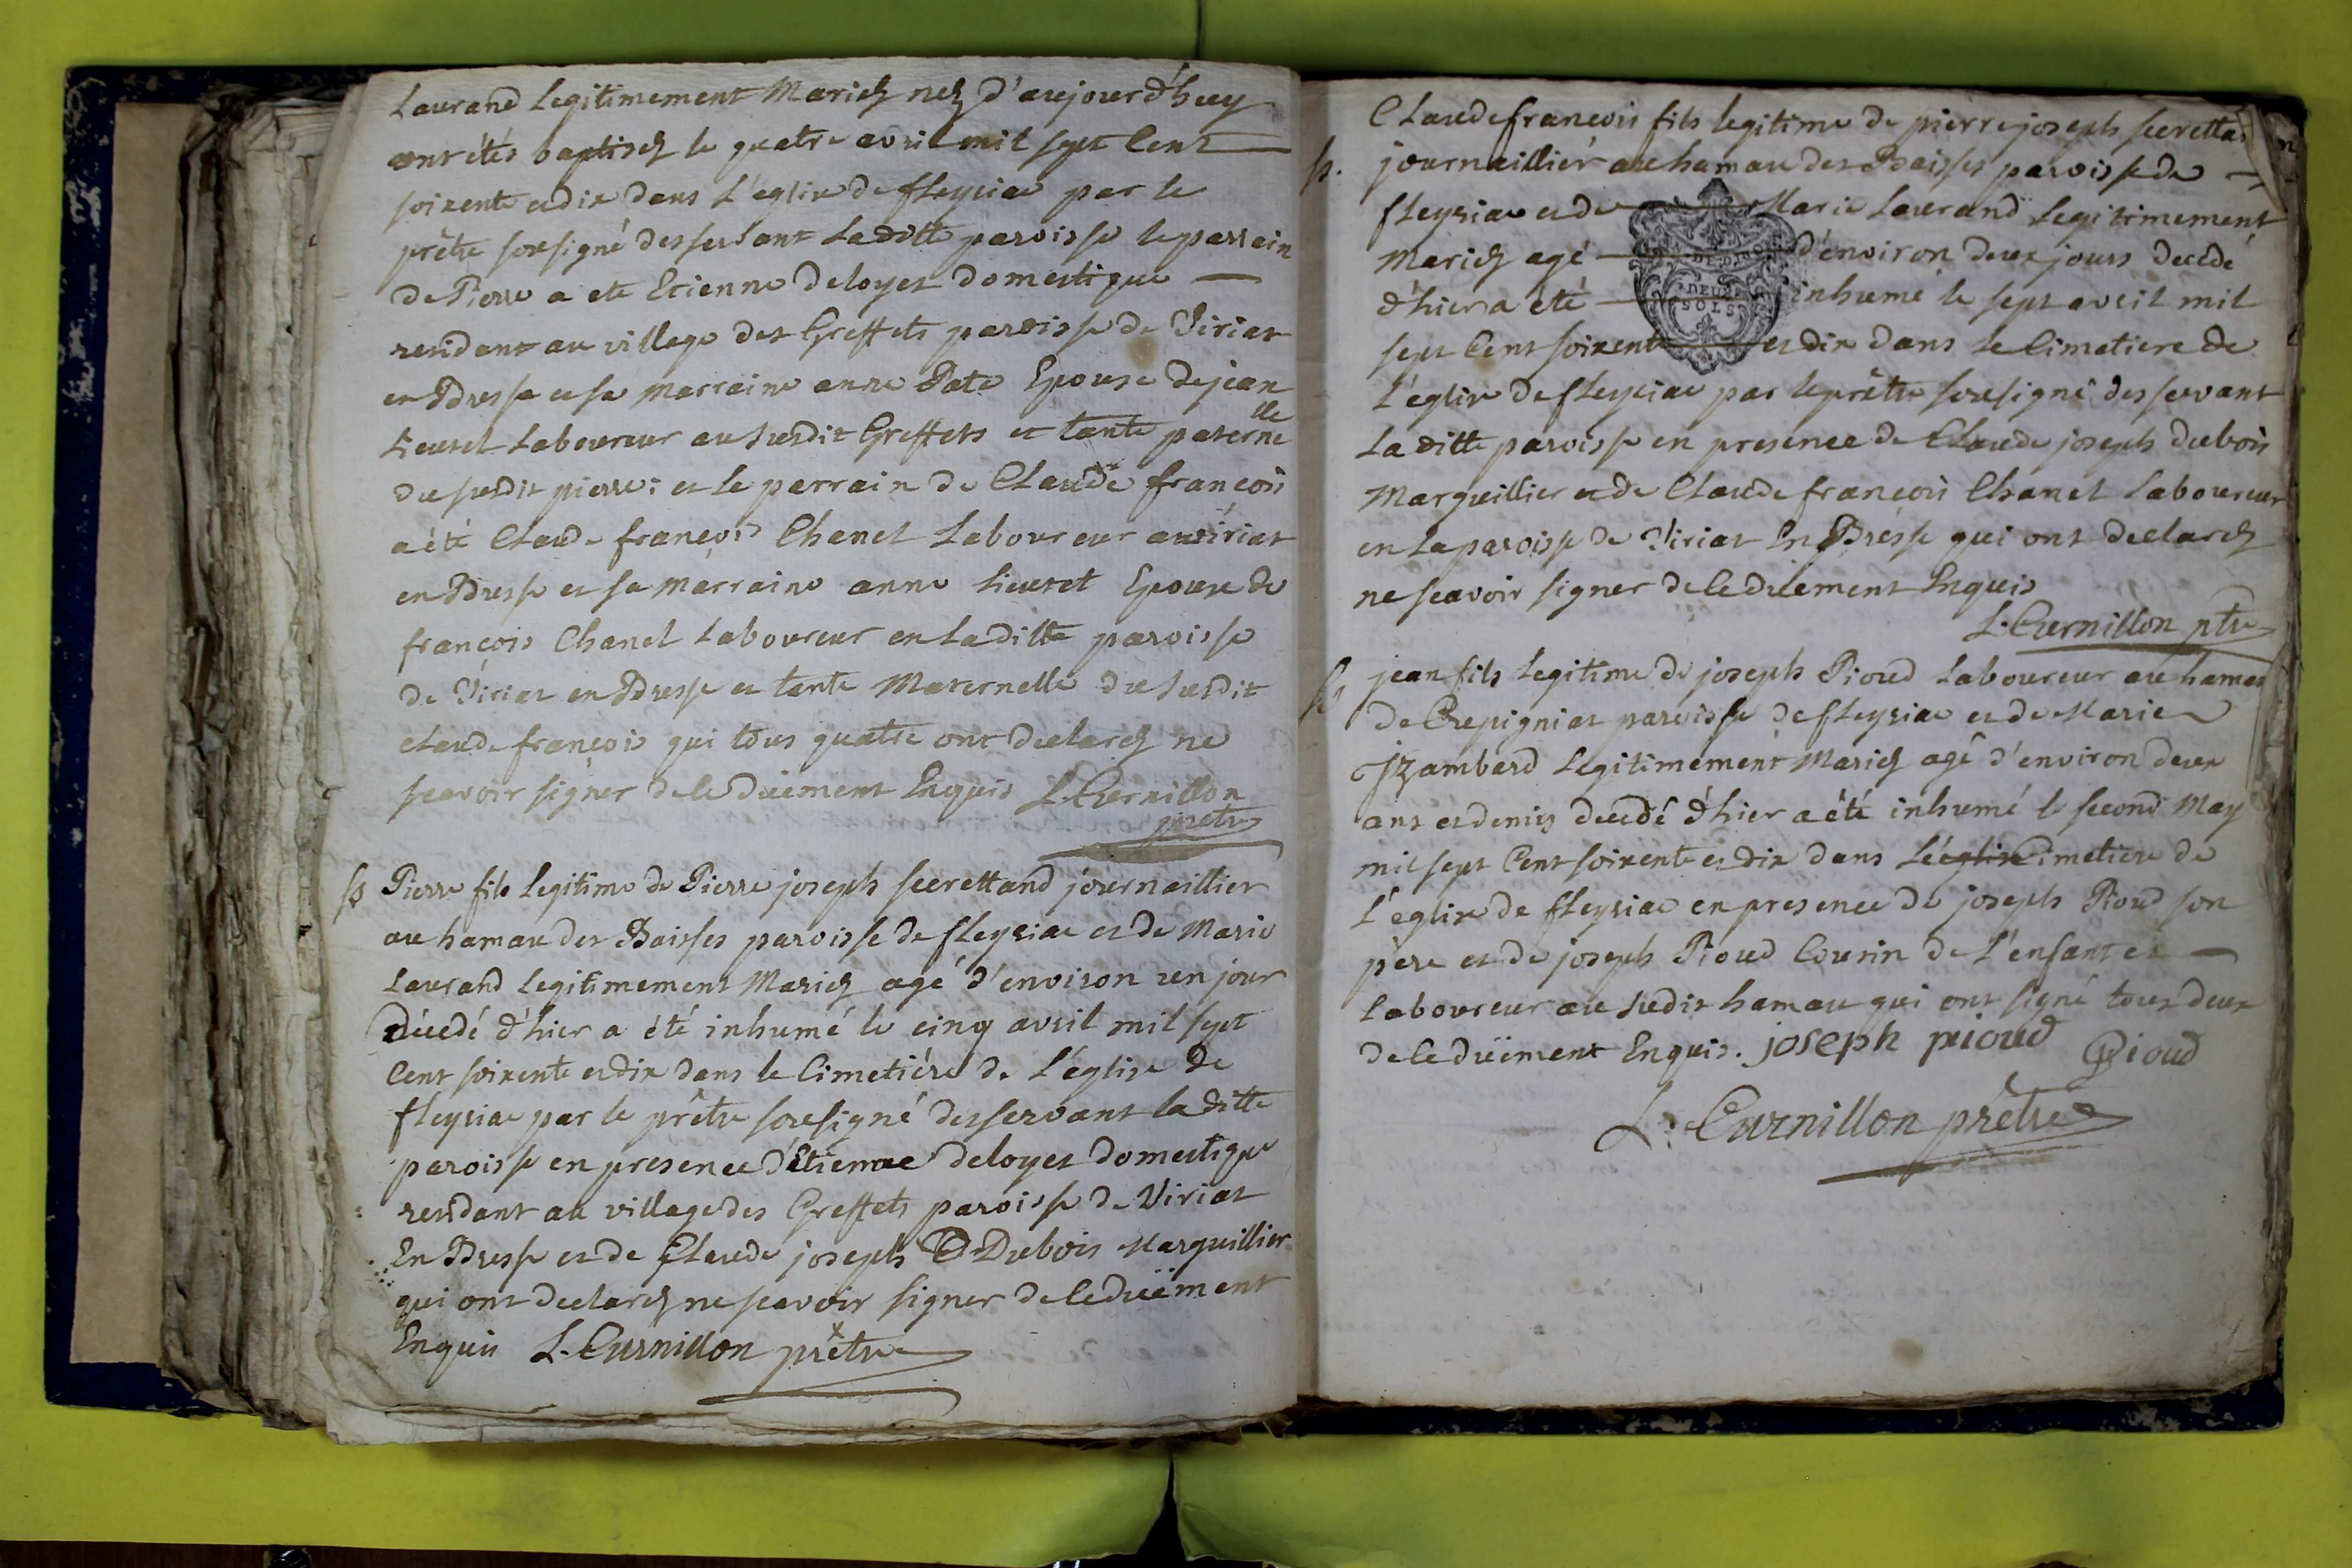 Laurand Legitimement Mariez nez d'aujourd'huy
ont étés baptisez le quatre avril mil sept Cent
soixente et dix dans L'eglise de fleyriac par le
prêtre sousigné desservant Laditte paroisse le parrain
de Pierre a ete Etienne Deloyet domestique
residant au village des Greffets paroisse de Viriat
en Bresse et sa marraine anne Pate Epouse de jean
Lieuret Laboureur au susdit Greffets et tante paternelle
du susdit pierre: et le parrain de Claude françois
a été Claude françois Chanel Laboureur au viriat
en Bresse et sa marraine anne Lieuret Epouse de
françois Chanel Laboureur en Laditte paroisse
de Viriat en Bresse et tante Maternelle du susdit
claude françois qui tous quatre ont declarez ne
scavoir signer de ce duëment Enquis L. Curnillon
prêtre
Pierre fils Legitime de Pierre joseph secrettand journaillier
au hamau des Baisses paroisse de fleyriac et de Marie
Laurand Legitimement Mariez agé d'environ un jour
décedé d'hier a été inhumé le cinq avril mil sept
Cent soixente et dix dans le Cimetière de L'église de
fleyriac par le prêtre sousigné desservant laditte
paroisse en presence d'étienne deloyet domestique
residant au village des Greffets paroisse de Viriat
En Bresse et de Claude joseph Dubois Marguillier
qui ont declarez ne scavoir signer de ce duëment
Enquis L. Curnillon prêtre
Claude francois fils legitime de pierre joseph secrettan
journaillier au hamau des Baisses paroisse de
fleyriac et de Marie Laurand Legitimement
Mariez agé d'environ deux jours decedé
d'hier a été inhumé le sept avril mil
sept Cent soixente et dix dans le Cimetiere de
L'église de fleyriac par le prêtre sousigné desservant
Laditte paroisse en presence de Claude joseph dubois
Marguillier et de Claude francois Chanel Laboureur
en La paroisse de Viriat En Bresse qui ont declarez
ne scavoir signer de ce duëment Enquis
L. Curnillon ptre
DEUX
SOLS
jean fils Legitime de joseph Pioud Laboureur au hamau
de Crepigniat paroisse de fleyriac et de Marie
Jzambard Legitimement Mariez agé d'environ deux
ans et demis decedé d'hier a été inhumé le second May
mil sept Cent soixente et dix dans Léeglise Cimetiere de
L'eglise de fleyriac en presence de joseph Pioud son
père et de joseph Pioud Cousin de L'enfant et
Laboureur au sudit hamau qui ont signé tous deux
de ce duëment Enquis. joseph pioud Pioud
L. Curnillon prêtre